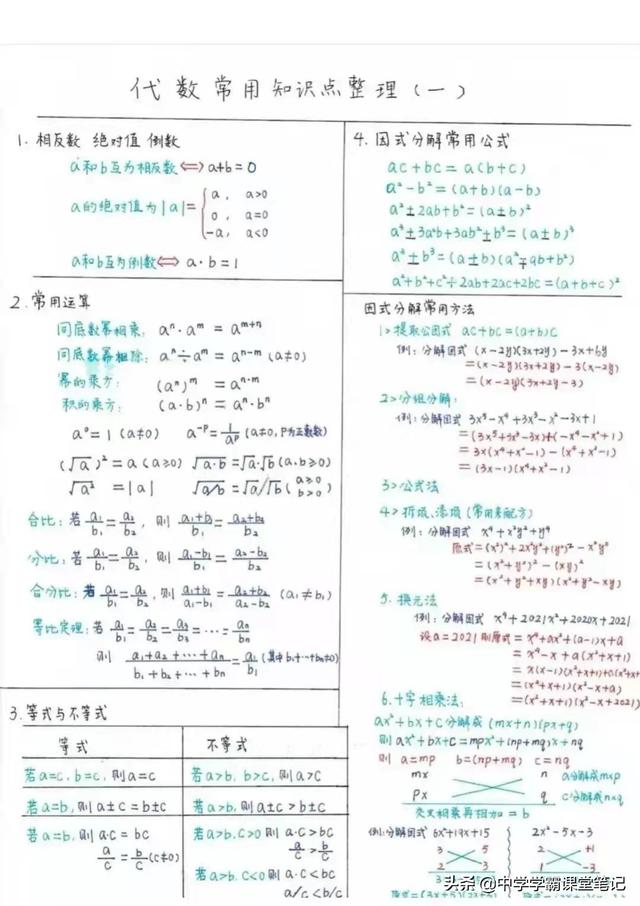 代数常用知识点整理(一)
1. 相反数 绝对值 倒数
a和b互为相反数⟺a+b=0
a的绝对值为|a|={a, a>0
0, a=0
-a, a<0
a和b互为倒数⟺a·b=1
2. 常用运算
同底数幂相乘: aⁿ·aᵐ=aᵐ⁺ⁿ
同底数幂相除: aⁿ÷aᵐ=aⁿ⁻ᵐ (a≠0)
幂的乘方: (aⁿ)ᵐ=aⁿ·ᵐ
积的乘方: (a·b)ⁿ=aⁿ·bⁿ
a⁰=1 (a≠0) a⁻ᴾ=1/aᴾ (a≠0, P为正整数)
(√a)²=a (a≥0) √a·b=√a·√b (a,b≥0)
√a²=|a| √a/b=√a/√b (a≥0 b>0)
合比: 若 a₁/b₁=a₂/b₂, 则 (a₁+b₁)/b₁=(a₂+b₂)/b₂
分比: 若 a₁/b₁=a₂/b₂, 则 (a₁-b₁)/b₁=(a₂-b₂)/b₂
合分比: 若 a₁/b₁=a₂/b₂, 则 (a₁+b₁)/(a₁-b₁)=(a₂+b₂)/(a₂-b₂) (a₁≠b₁)
等比定理: 若 a₁/b₁=a₂/b₂=a₃/b₃=···=aₙ/bₙ
则 (a₁+a₂+···+aₙ)/(b₁+b₂+···+bₙ)=a₁/b₁ (其中b₁+···+bₙ≠0)
3. 等式与不等式
等式 不等式
若a=c, b=c, 则a=c 若a>b, b>c, 则a>c
若a=b, 则a±c=b±c 若a>b, 则a±c>b±c
若a=b, 则a·c=bc 若a>b, c>0 则a·c>bc
a/c=b/c (c≠0) a/c>b/c
若a>b, c<0 则a·c<bc
a/c<b/c
4. 因式分解常用公式
ac+bc=a(b+c)
a²-b²=(a+b)(a-b)
a²±2ab+b²=(a±b)²
a³±3a²b+3ab²±b³=(a±b)³
a³±b³=(a±b)(a²∓ab+b²)
a²+b²+c²+2ab+2ac+2bc=(a+b+c)²
因式分解常用方法
1> 提取公因式 ac+bc=(a+b)c
例: 分解因式 (x-2y)(3x+2y)-3x+6y
=(x-2y)(3x+2y)-3(x-2y)
=(x-2y)(3x+2y-3)
2> 分组分解:
例: 分解因式 3x⁵-x⁴+3x³-x²-3x+1
=(3x⁵+3x³-3x)+(-x⁴-x²+1)
=3x(x⁴+x²-1)-(x⁴+x²-1)
=(3x-1)(x⁴+x²-1)
3> 公式法
4> 拆项、添项 (常用来配方)
例: 分解因式 x⁴+x²y²+y⁴
原式=(x²)²+2x²y²+(y²)²-x²y²
=(x²+y²)²-(xy)²
=(x²+y²+xy)(x²+y²-xy)
5. 换元法
例: 分解因式 x⁴+2021x²+2020x+2021
设a=2021则原式=x⁴+ax²+(a-1)x+a
=x⁴-x+a(x²+x+1)
=x(x-1)(x²+x+1)+a(x²+x+
=(x²+x+1)(x²-x+a)
=(x²+x+1)(x²-x+2021)
6. 十字相乘法:
ax²+bx+c分解成(mx+n)(px+q)
则ax²+bx+c=mpx²+(np+mq)x+nq
则 a=mp b=(np+mq) c=nq
mx n a分解成m×p
px q c分解成n×q
交叉相乘再相加=b
例: 分解因式 6x²+19x+15 2x²-5x-3
3 5 2 +1
2 3 1 -3
头条@中学学霸课堂笔记